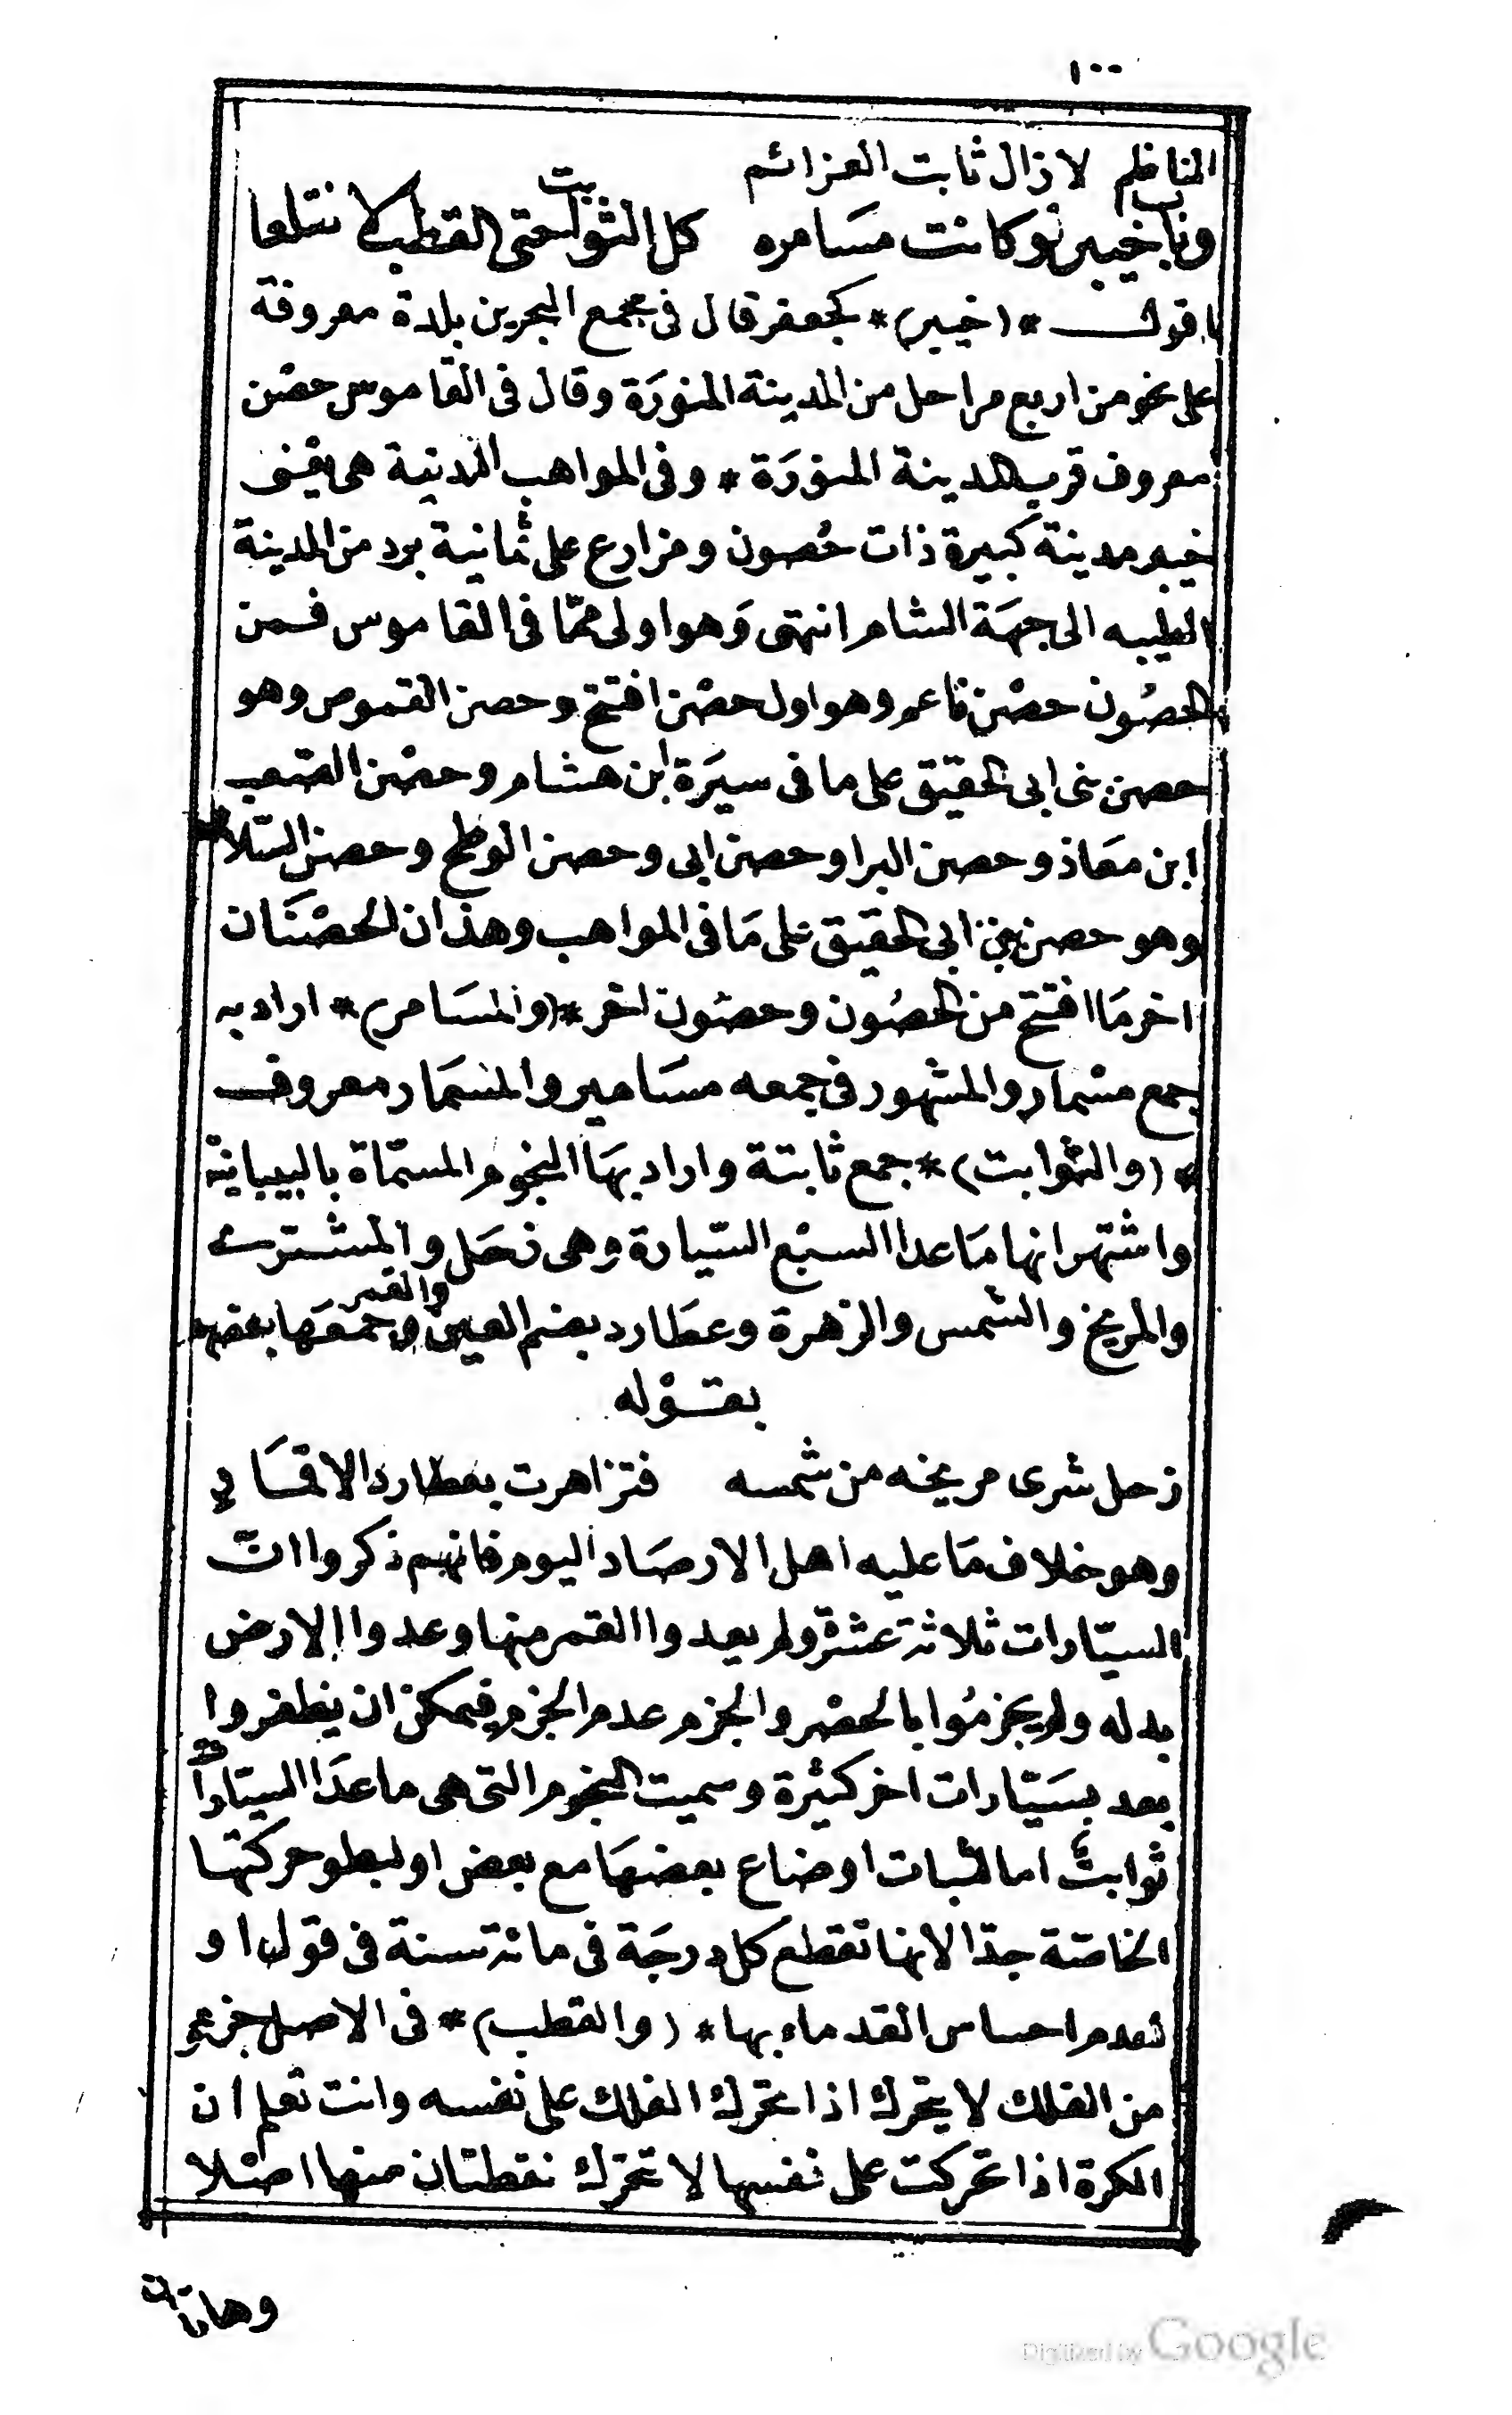 ١٠٠
الناظم لا زال ثابت العزائم
وباب خيبر لو كانت مسامره كل الثوابت حتى القطب لا نتلعا
اقول *(خيبر)* كجعفر قال فى مجمع البحرين بلدة معروفة
على نحو من اربع مراحل من المدينة المنورة وقال فى القاموس حصن
معروف قرب المدينة المنورة * وفى المواهب اللدنية هى يعنى
خيبر مدينة كبيرة ذات حصون ومزارع على ثمانية برد من المدينة
الطيبه الى جهة الشام انتهى وهو اولى مما فى القاموس فمن
الحصون حصن ناعم وهو اول حصن افتتح وحصن القموص وهو
حصن بنى ابى الحقيق على ما فى سيرة ابن هشام وحصن الصعب
ابن معاذ وحصن البرا وحصن ابى وحصن الوطيح وحصن السلالم
وهو حصن بنى ابى الحقيق على ما فى المواهب وهذان الحصنان
اخر ما افتتح من الحصون وحصون اخر *(والمسامر)* اراد به
جمع مسمار والمشهور فى جمعه مسامير والمسمار معروف
*(والثوابت)* جمع ثابتة واراد بها النجوم المسماة بالبيبانية
واشتهر انها ما عدا السبع السيارة وهى زحل والمشترى
والمريخ والشمس والزهرة وعطارد بضم العين والقمر وجمعها بعضهم
بقوله
زحل شرى مريخه من شمسه فتزاهرت بعطارد الاقمار
وهو خلاف ما عليه اهل الارصاد اليوم فانهم ذكروا ان
السيارات ثلاثة عشرة ولم يعدوا القمر منها وعدوا الارض
بدله ولم يجزموا بالحصر والجزم عدم الجزم فيمكن ان يظفروا
بعد بسيارات اخر كثيرة وسميت النجوم التى هى ما عدا السيارات
ثوابت اما لثبات اوضاع بعضها مع بعض او لبطو حركتها
الخاصة جدا لانها تقطع كل درجة فى مائة سنة فى قول او
لعدم احساس القدماء بها *(والقطب)* فى الاصل جزء
من الفلك لا يتحرك اذا تحرك الفلك على نفسه وانت تعلم ان
الكرة اذا تحركت على نفسها لا تتحرك نقطتان منها اصلا
وهاتان
Digitized by Google